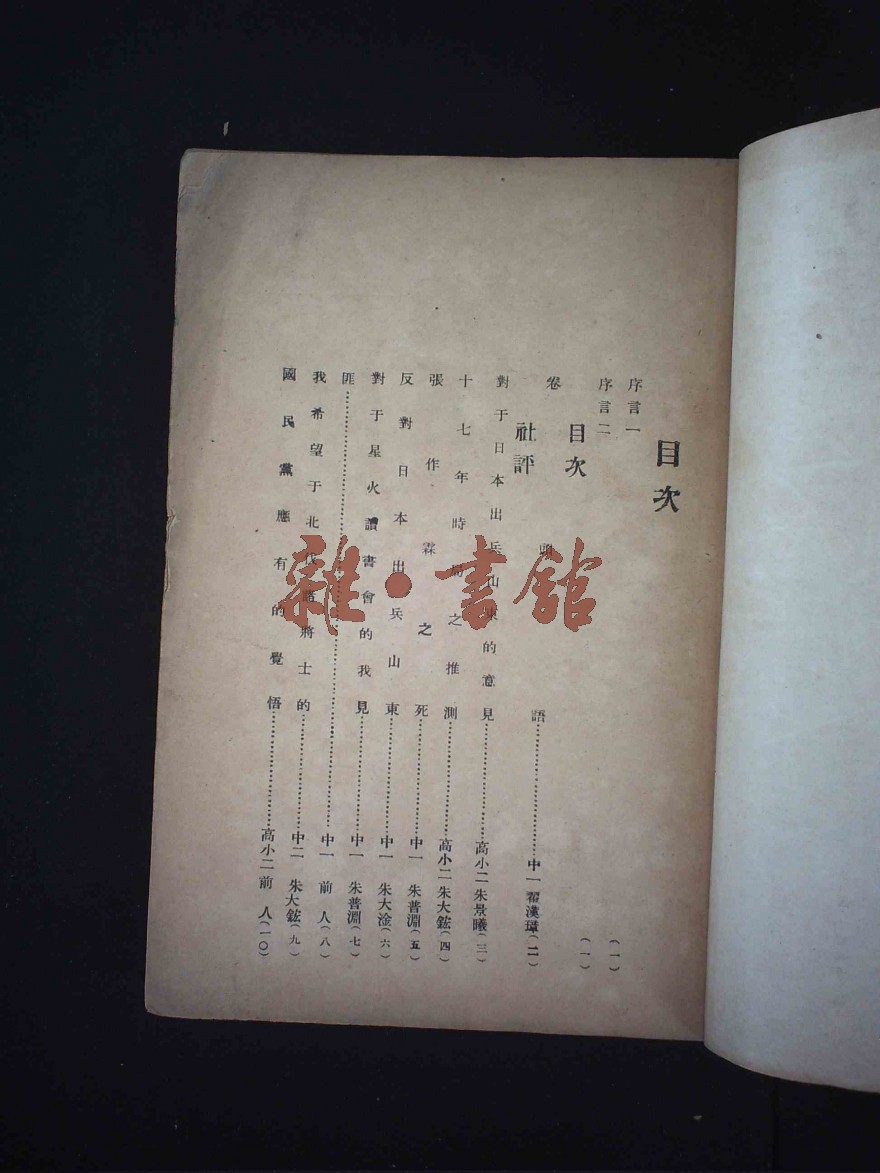 目次
序言一(一)
序言二(一)
目次
卷頭語……中一 翟漢璋(二)
社評
對于日本出兵山東的意見……高小二 朱景曦(三)
十七年時局之推測……高小二 朱大鋐(四)
張作霖之死……中一 朱普淵(五)
反對日本出兵山東……中一 朱大淦(六)
對于星火讀書會的我見……中一 朱普淵(七)
匪……中一 前人(八)
我希望于北伐諸將士的……中二 朱大鋐(九)
國民黨應有的覺悟……高小二 前人(一〇)
雜·書館